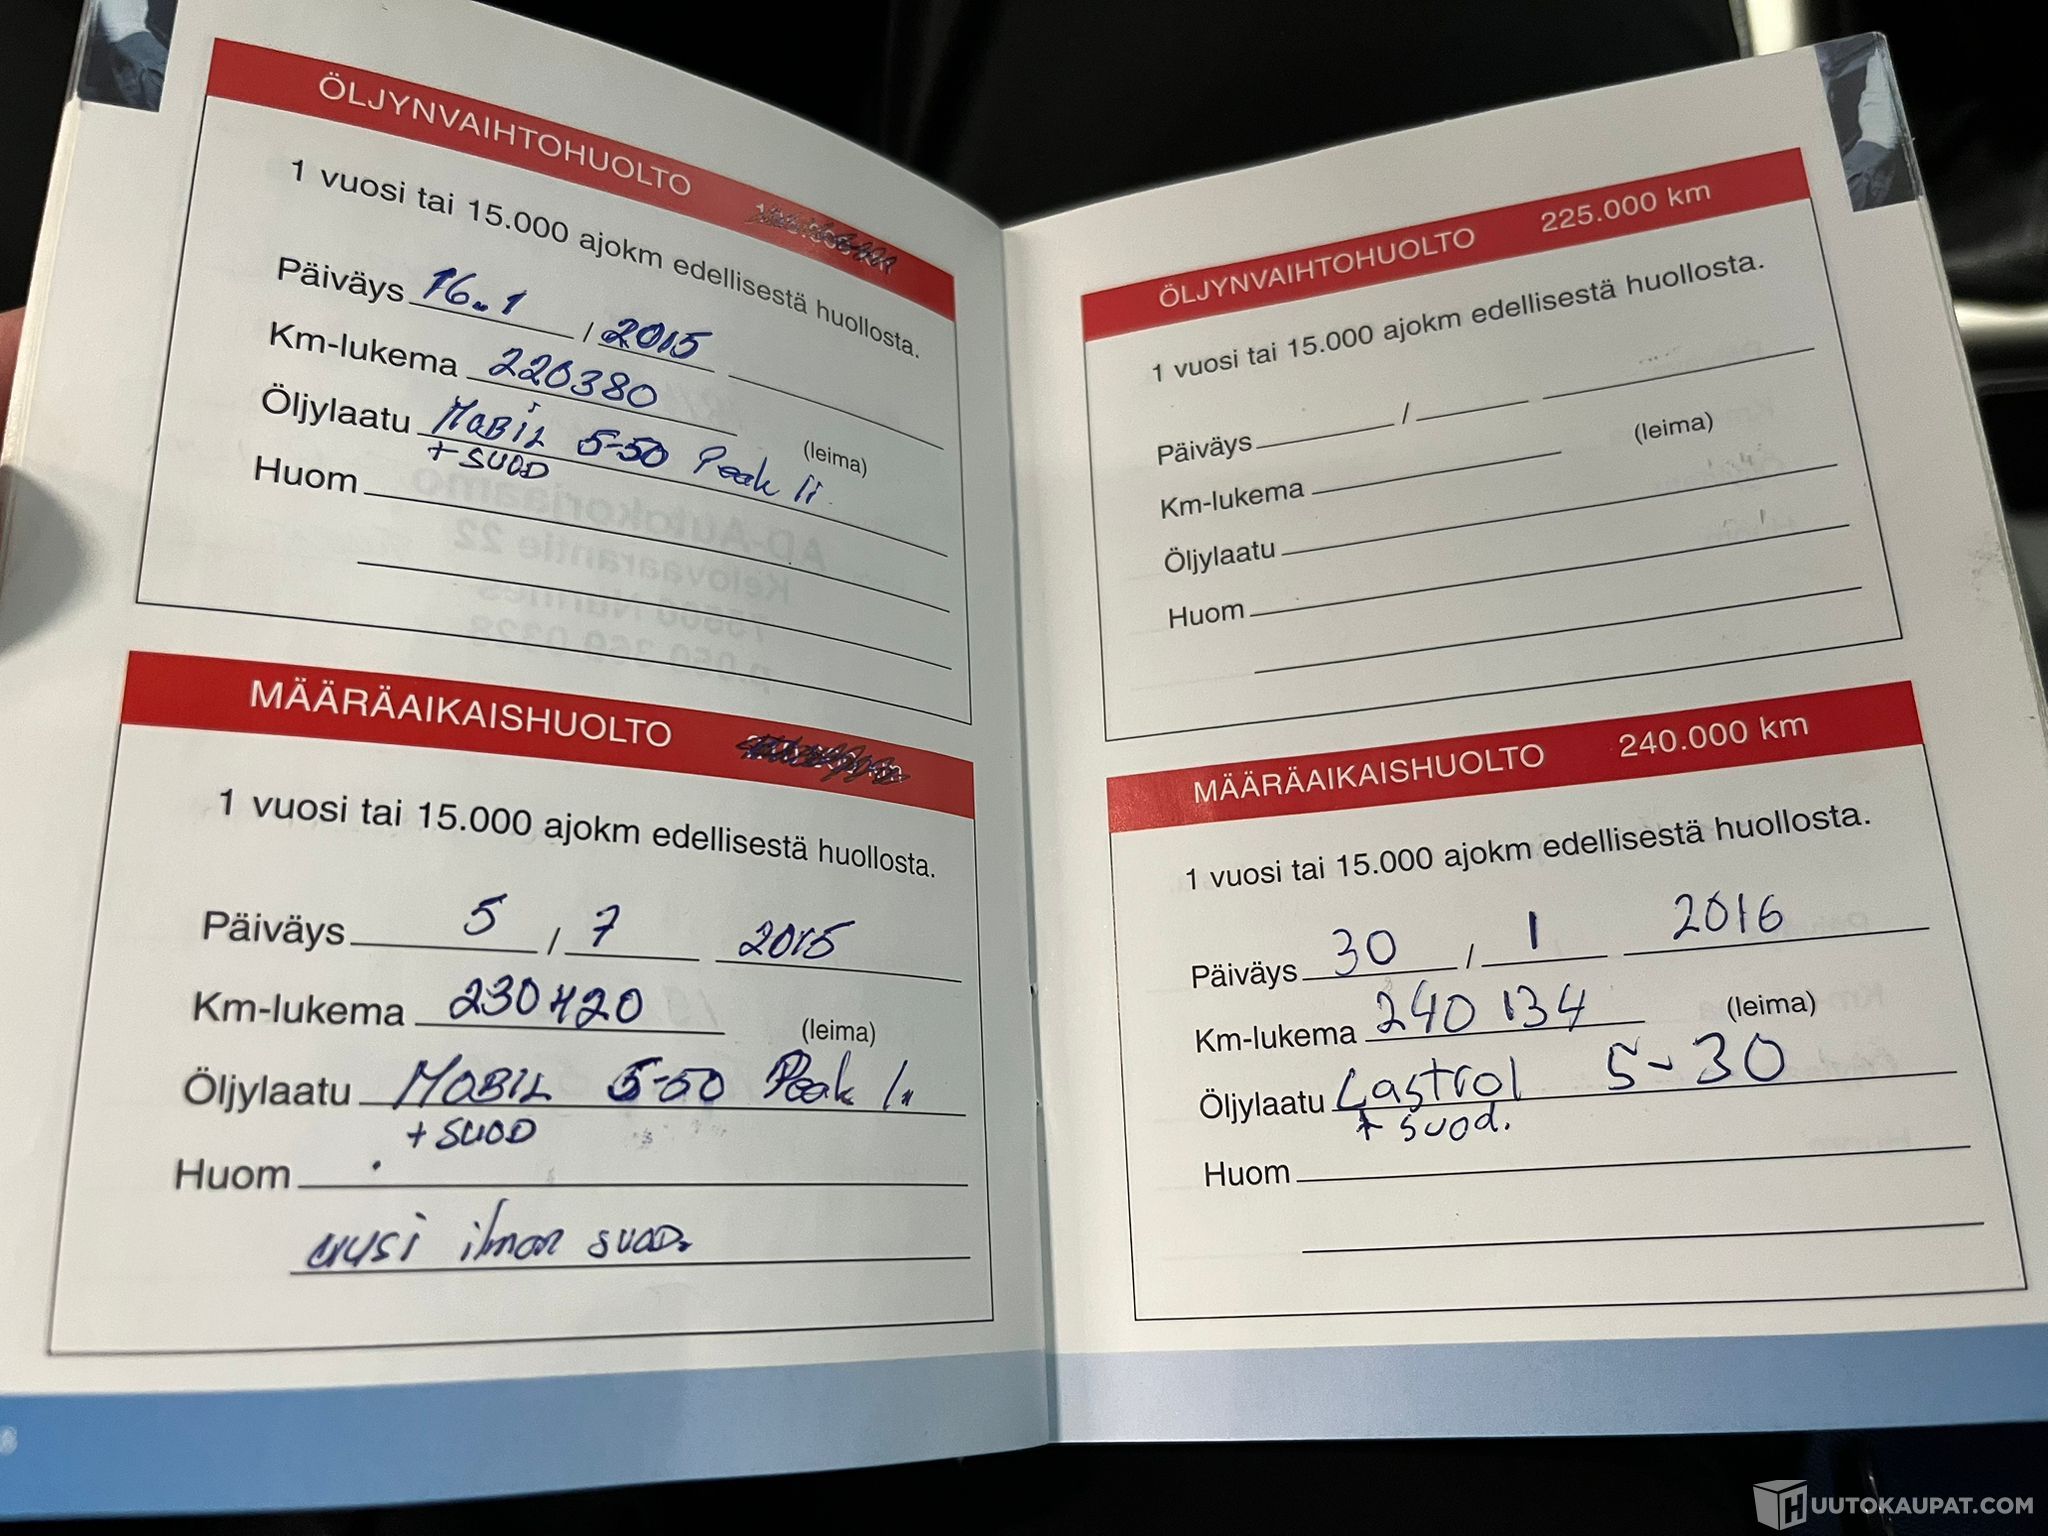 ÖLJYNVAIHTOHUOLTO
1 vuosi tai 15.000 ajokm edellisestä huollosta.
Päiväys 16.1 / 2015
Km-lukema 220380
(leima)
Öljylaatu MOBIL 5-50 Peak
+ SUOD
Huom
MÄÄRÄAIKAISHUOLTO
1 vuosi tai 15.000 ajokm edellisestä huollosta.
Päiväys 5 / 7 2015
Km-lukema 230420
(leima)
Öljylaatu MOBIL 5-50 Peak
+ SUOD
Huom
uusi ilman SUOD.
ÖLJYNVAIHTOHUOLTO 225.000 km
1 vuosi tai 15.000 ajokm edellisestä huollosta.
Päiväys /
(leima)
Km-lukema
Öljylaatu
Huom
MÄÄRÄAIKAISHUOLTO 240.000 km
1 vuosi tai 15.000 ajokm edellisestä huollosta.
Päiväys 30 / 1 2016
Km-lukema 240 134
(leima)
Öljylaatu Castrol 5-30
+ suod.
Huom
HUUTOKAUPAT.COM